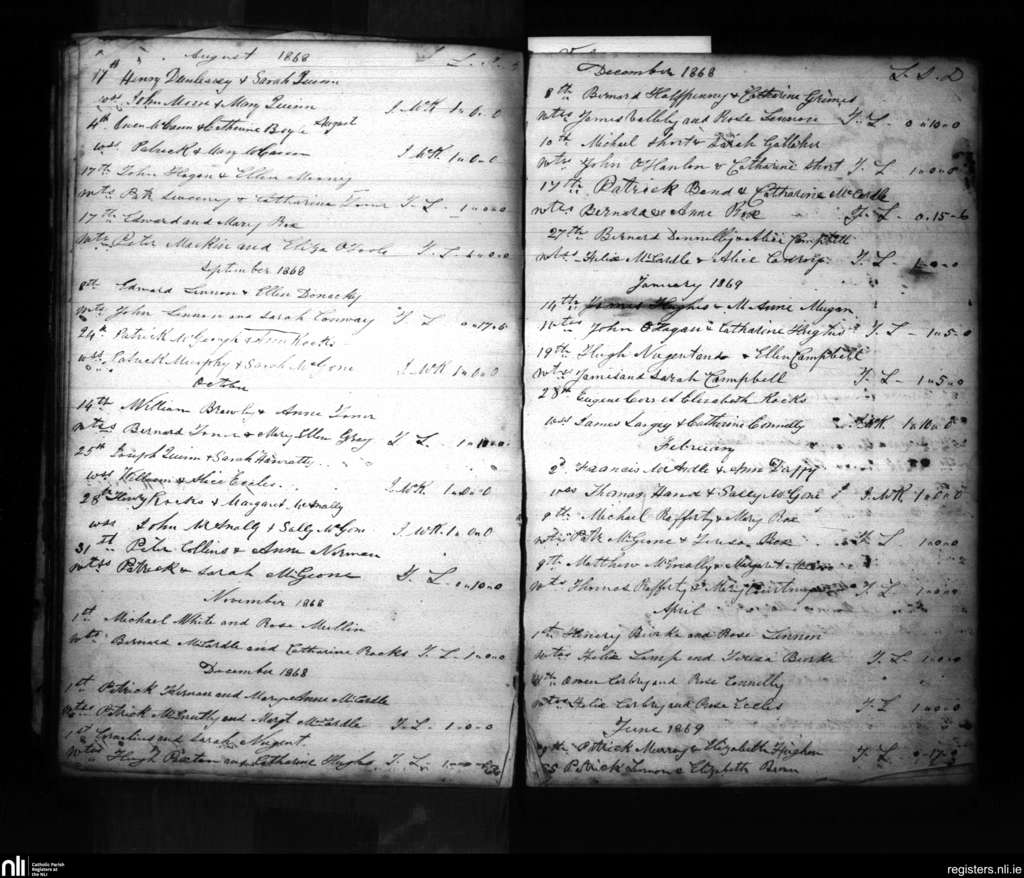 August 1868
17th Henry Dunleavy & Sarah Quinn
wss John Moore & Mary Quinn J McK 1-0-0
4th Owen McCann & Catherine Boyle August
wss Patrick & Mary McCann J McK 1-0-0
17th John Hagan & Ellen
Wtss Pk Sweeney & Catharine Toner T L 1-0-0
17th Edward and Mary Box
Wtss Peter Mackin and Eliza O'Toole T L 1-0-0
September 1868
8th Edward Lennon & Ellen Donachy
Wtss John Lennon and Sarah Conway T L 0-17-6
24th Patrick McGeough & Ann Rocks
wss Patrick Murphy & Sarah McGone J McK 1-0-0
October
14th William Brawly & Anne Toner
Wtss Bernard Toner & Mary Ellen Gray T L 1-10-0
25th Joseph Quinn & Sarah Hanratty
wss William & Alice Eccles J McK 1-0-0
28th Henry Rocks & Margaret McAnally
wss John McAnally & Sally McGone J McK 1-0-0
31st Peter Collins & Anne Norman
Wtss Patrick & Sarah McGeone T L 0-10-0
November 1868
1st Michael White and Rose Mullin
Wtss Bernard McArdle and Catharine Rocks T L 1-0-0
December 1868
1st Patrick Kernan and Mary Anne McArdle
Wtss Patrick and Margt McArdle T L 1-0-0
1st Cornelius and Sarah Nugent
Wtss Hugh and Catharine Hughs T L 1-0-0
December 1868 L S D
8th Bernard Halfpenny & Catharine Grimes
Wtss James and Rose Lennon T L 0-10-0
10th Micheal Short & Sarah Gallaher
Wtss John O'Hanlon & Catharine Short T L 1-0-0
17th Patrick Bond & Catharine McArdle
Wtss Bernard & Anne Box T L 0-15-6
27th Bernard Donnelly & Alice Campbell
Wtss Felix McArdle & Alice T L 1-0-0
January 1869
14th James Hughes & M Anne Mugan
Wtss John O'Hagan & Catharine Hughs T L 1-5-0
19th Hugh Nugent and & Ellen Campbell
Wtss James and Sarah Campbell T L 1-5-0
28th Eugene Corr & Elizabeth Rocks
wss James Largey & Catherine Connolly J McK 1-10-0
February
2d Francis McArdle & Ann Duffy
wss Thomas Hand & Sally McGone J McK 1-0-0
9th Michael Rafferty & Mary Box
Wtss Pk McGeone & Teresa Box T L 1-0-0
9th Matthew McAnally & Margaret
Wtss Thomas Rafferty & Mary T L 1-0-0
April
1st Henery Burke and Rose Lennon
Wtss Felix Lamp and Teresa Burke T L 1-0-0
4th Owen Corbry and Rose Connolly
Wtss Felix Corbry and Rose Eccles T L 1-0-0
June 1869
9th Patrick Murray & Elizabeth Hughes T L 0-17-
Patrick Lennon & Elizabeth
nli Catholic Parish Registers at the NLI
registers.nli.ie